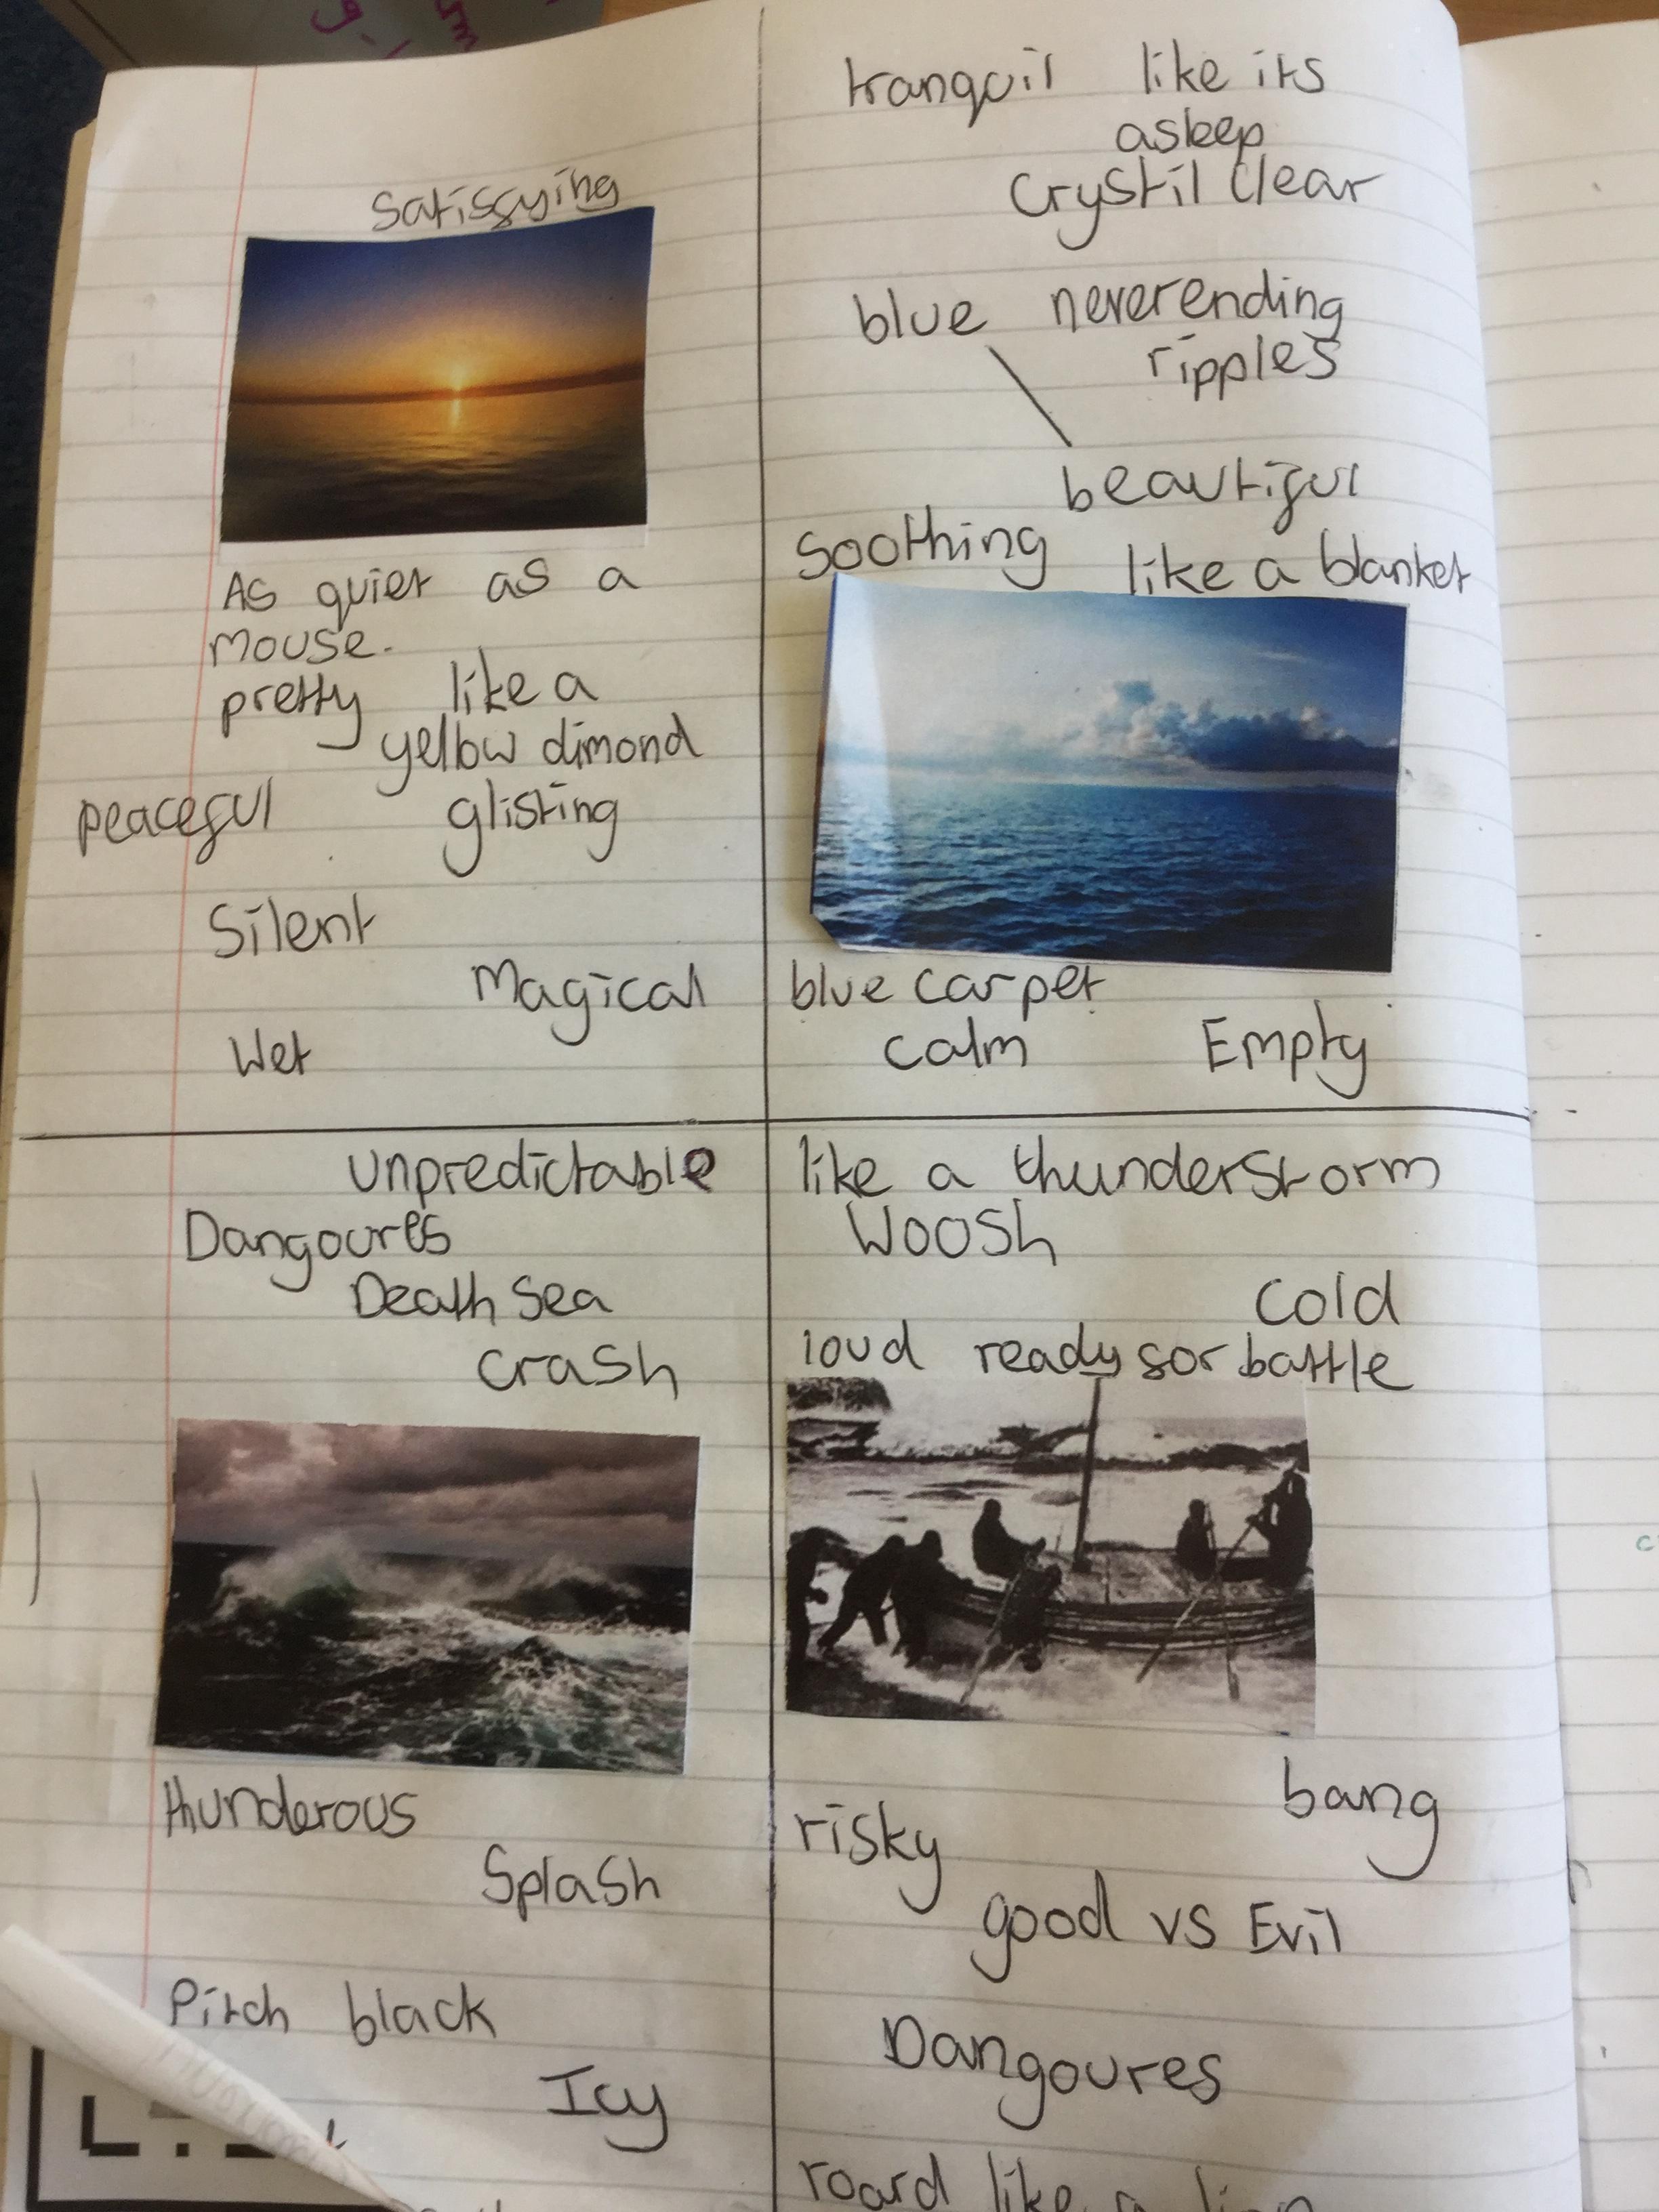 Satisfying
As quiet as a
mouse.
pretty like a
yellow dimond
peaceful glisting
Silent
Magical
Wet
tranquil like its
asleep
Crystil Clear
blue neverending
ripples
beautiful
Soothing like a blanket
blue carpet
calm Empty
Unpredictable
Dangoures
Death Sea
crash
thunderous
Splash
Pitch black
Icy
like a thunderstorm
Woosh
Cold
loud ready for battle
bang
risky
good vs Evil
Dangoures
roard like a lion